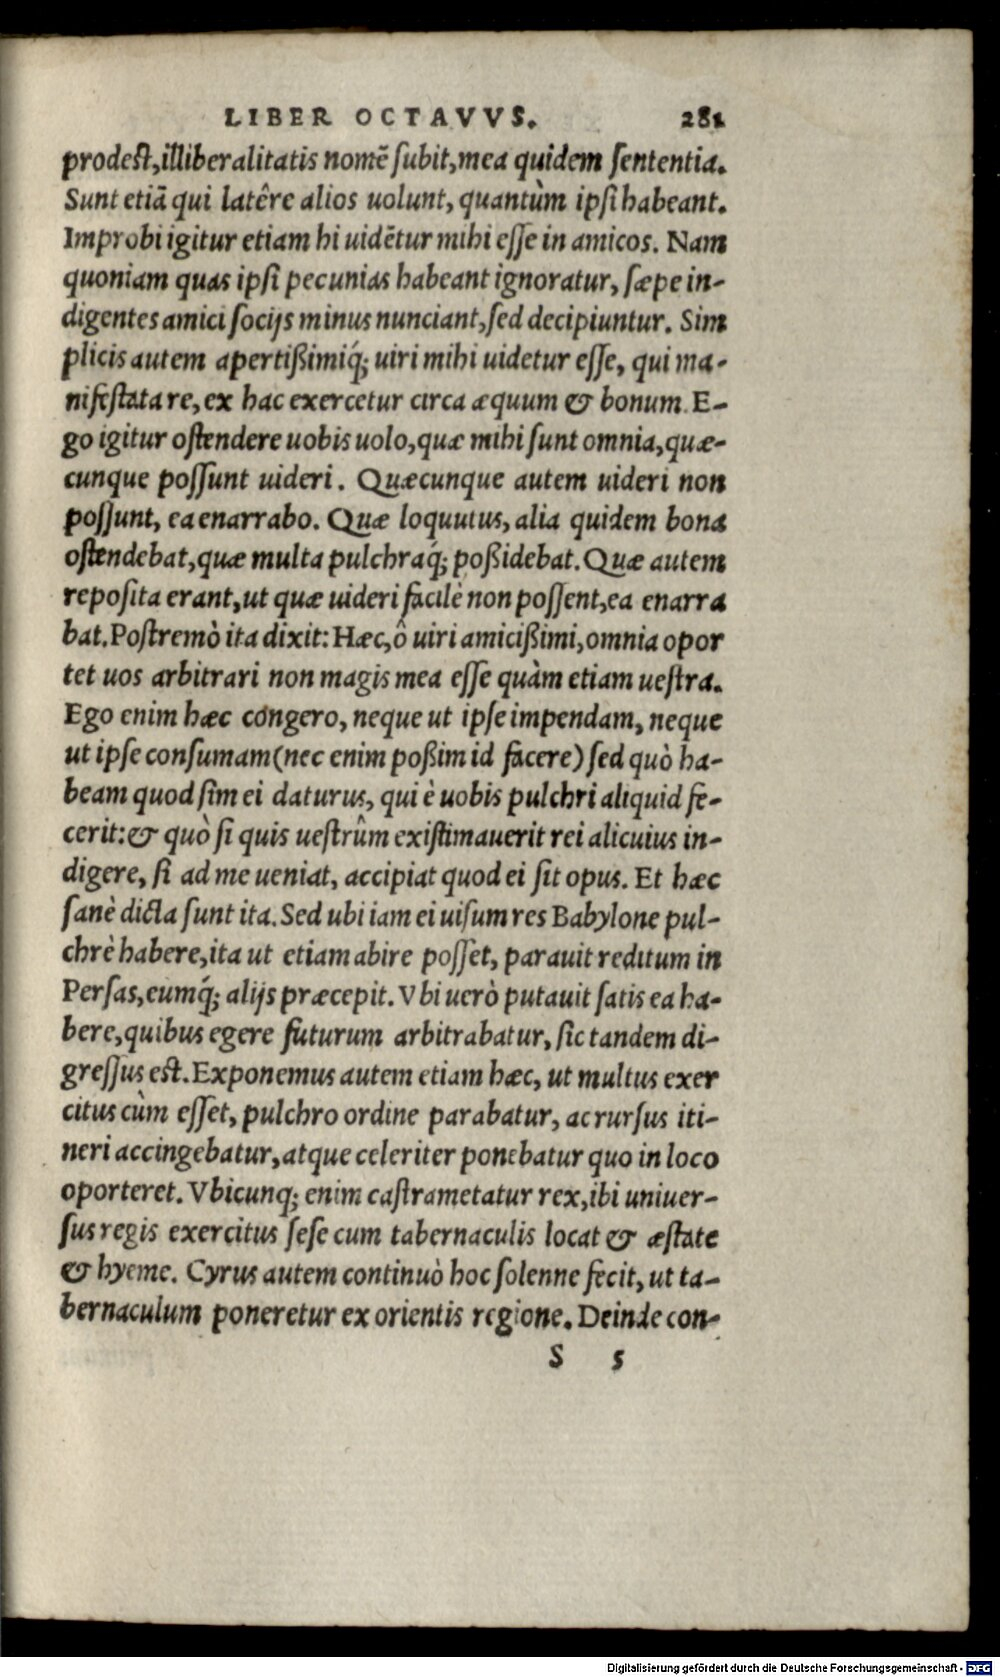 LIBER OCTAVVS. 281
prodest, illiberalitatis nomē subit, mea quidem sententia.
Sunt etiā qui latêre alios uolunt, quantùm ipsi habeant.
Improbi igitur etiam hi uidētur mihi esse in amicos. Nam
quoniam quas ipsi pecunias habeant ignoratur, sæpe in-
digentes amici socijs minus nunciant, sed decipiuntur. Sim
plicis autem apertißimiq́; uiri mihi uidetur esse, qui ma-
nifestata re, ex hac exercetur circa æquum & bonum. E-
go igitur ostendere uobis uolo, quæ mihi sunt omnia, quæ-
cunque possunt uideri. Quæcunque autem uideri non
possunt, ea enarrabo. Quæ loquutus, alia quidem bona
ostendebat, quæ multa pulchraq́; poßidebat. Quæ autem
reposita erant, ut quæ uideri facilè non possent, ea enarra
bat. Postremò ita dixit: Hæc, ô uiri amicißimi, omnia opor
tet uos arbitrari non magis mea esse quàm etiam uestra.
Ego enim hæc congero, neque ut ipse impendam, neque
ut ipse consumam (nec enim poßim id facere) sed quò ha-
beam quod sim ei daturus, qui è uobis pulchri aliquid fe-
cerit: & quò si quis uestrûm existimauerit rei alicuius in-
digere, si ad me ueniat, accipiat quod ei sit opus. Et hæc
sanè dicta sunt ita. Sed ubi iam ei uisum res Babylone pul-
chrè habere, ita ut etiam abire posset, parauit reditum in
Persas, eumq́; alijs præcepit. Vbi uerò putauit satis ea ha-
bere, quibus egere futurum arbitrabatur, sic tandem di-
gressus est. Exponemus autem etiam hæc, ut multus exer
citus cùm esset, pulchro ordine parabatur, ac rursus iti-
neri accingebatur, atque celeriter ponebatur quo in loco
oporteret. Vbicunq; enim castrametatur rex, ibi uniuer-
sus regis exercitus sese cum tabernaculis locat & æstate
& hyeme. Cyrus autem continuò hoc solenne fecit, ut ta-
bernaculum poneretur ex orientis regione. Deinde con-
S 5
Digitalisierung gefördert durch die Deutsche Forschungsgemeinschaft - DFG